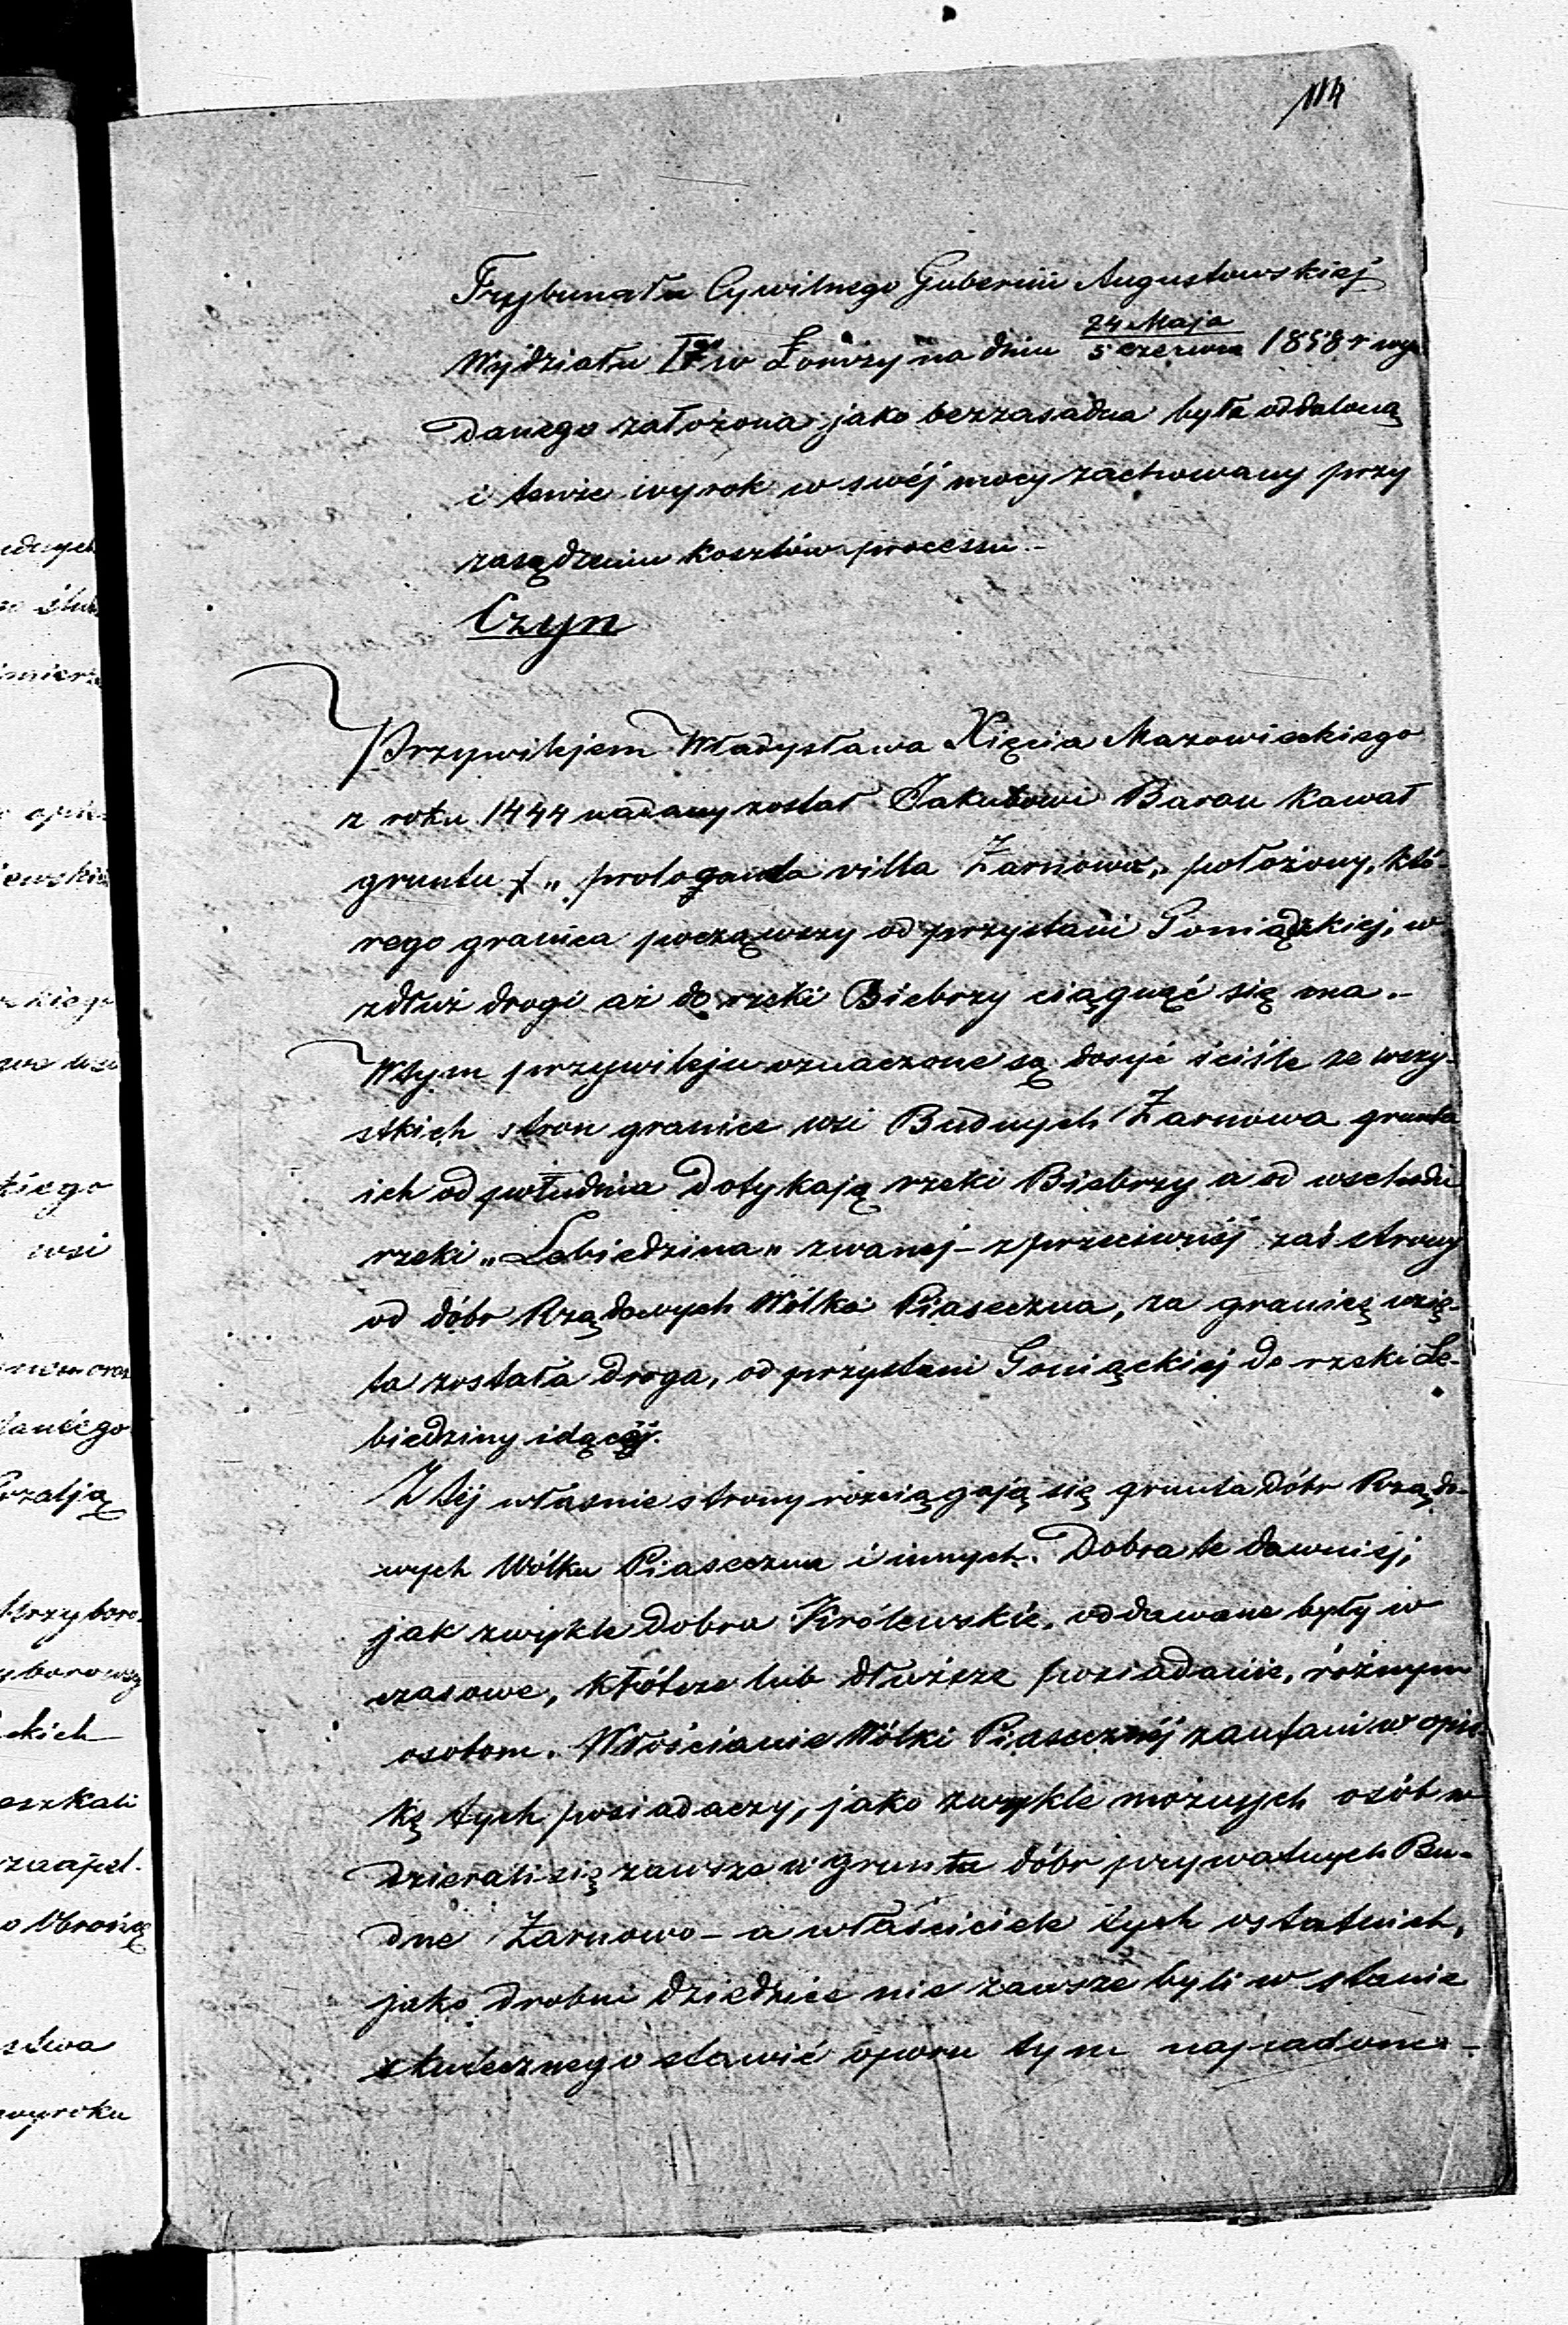 114
Trybunału Cywilnego Gubernii Augustowskiej
Wydziału Igo w Łomży na dniu 24 Maja / 5 Czerwca 1858 r wy-
danego założona jako bezzasadna była oddaloną
i tenże wyrok w swéj mocy zachowany przy
zasądzeniu kosztów processu.-
Czyn
Przywilejem Władysława Xięcia Mazowieckiego
z roku 1444 nadany został Jakubowi Baran kawał
gruntu „ pro locanda villa Żarnowo „ położony, któ-
rego granica począwszy od przystani Goniądzkiej, w
zdłuż drogi aż do rzeki Biebrzy ciągnąć się ma.-
W tym przywileju oznaczone są dosyć ściśle ze wszy-
stkich stron granice wsi Budnych Żarnowa grunta
ich od południa dotykają rzeki Biebrzy a od wschodu
rzeki „Lebiedzina„ zwanej - z przeciwnéj zaś strony
od dóbr Rządowych Wólka Piaseczna, za granicę wzię-
ta została droga, od przystani Goniąckiej do rzeki Le-
biedziny idącéj.
Z tej właśnie strony rozciągają się grunta dóbr Rządo-
wych Wólka Piaseczna i innych. Dobra te dawniej,
jak zwykle dobra Królewskie, oddawane były w
czasowe, krótsze lub dłuższe posiadanie, różnym
osobom. Włościanie Wólki Piasecznéj zaufani w opie-
kę tych posiadaczy, jako zwykle możnych osób w
dzierali się zawsze w grunta dóbr prywatnych Bu-
dne Żarnowo - a właściciele tych ostatnich,
jako drobni dziedzice nie zawsze byli w stanie
skutecznego stawić oporu tym napadom -
ski
wsi
ckich
wyroku